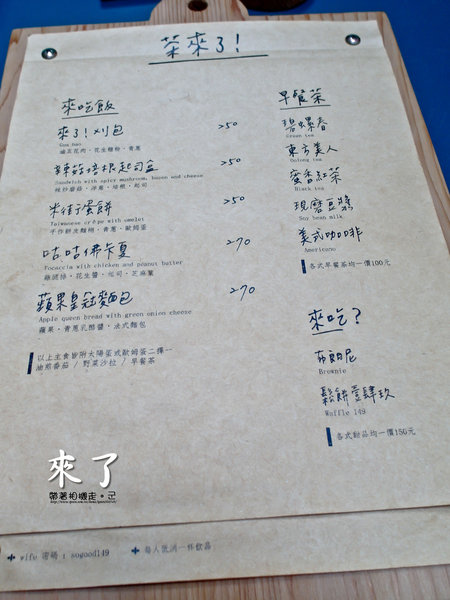 茶來了!
來吃飯
來了!刈包 250
Gua bao
滷五花肉、花生糖粉、青蔥
辣菇培根起司盒 250
Sandwich with spicy mushroom, bacon and cheese
辣炒蘑菇、洋蔥、培根、起司
米街蛋餅 250
Taiwanese crêpe with omelet
手作餅皮麵糊、青蔥、歐姆蛋
咕咕佛卡夏 270
Focaccia with chicken and peanut butter
雞腿排、花生醬、起司、芝麻葉
蘋果皇冠麵包 270
Apple queen bread with green onion cheese
蘋果、青蔥乳酪醬、法式麵包
以上主食皆附太陽蛋或歐姆蛋二擇一
油煎番茄 / 野菜沙拉 / 早餐茶
早餐茶
碧螺春
Green tea
東方美人
Oolong tea
蜜香紅茶
Black tea
現磨豆漿
Soy bean milk
美式咖啡
Americano
各式早餐茶均一價100元
來吃?
布朗尼
Brownie
鬆餅壹肆玖
Waffle 149
各式甜品均一價150元
來了
帶著相機走。記
wifu 密碼 : sogood149
每人低消一杯飲品